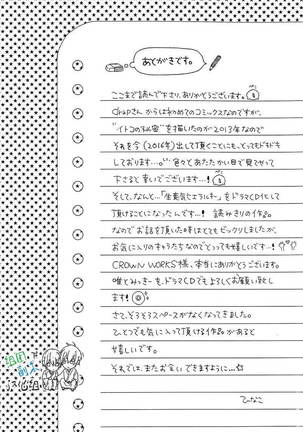 あとがきです。
ここまで読んで下さり、ありがとうございます。
Chapさんからは初めてのコミックスなのですが、
"イトコの秘密"を描いたのが2013年なので
それを今(2016年)出して頂くことにも、とってもドキドキ
しております…。色々とあたたかい目で見て
下さると幸いでございます…!
そして、なんと…「生意気にエラルキー」をドラマCD化して
頂けることになったんです…! 読みきりの作品
なのでお話を頂いた時はとてもビックリしましたが、
お気に入りのキャラたちなのでとっても嬉しいです…!
CROWN WORKS様、本当にありがとうございます。
唯とみっきーを、ドラマCDでもよろしくお願い致し
ます!
さて、そろそろスペースがなくなってきました。
ひとつでも気に入って頂ける作品があると
嬉しいです。
それでは、またお会いできますように…
ひなこ